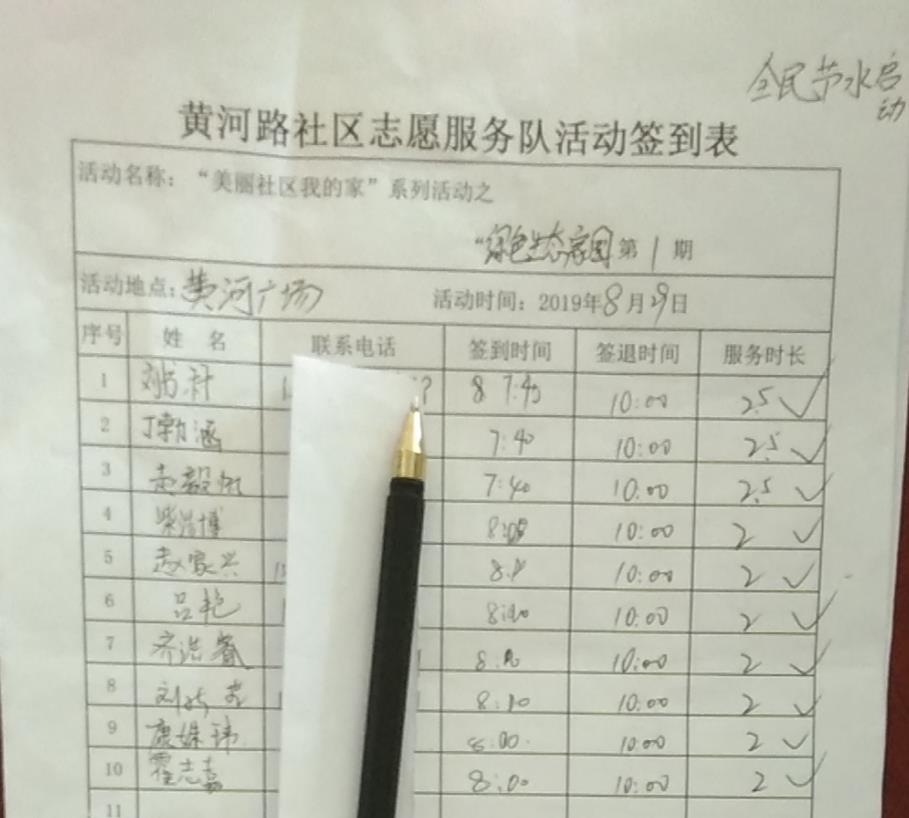 全民节水启
动
黄河路社区志愿服务队活动签到表
活动名称：“美丽社区我的家”系列活动之
“绿色生态家园第1期
活动地点：黄河广场 活动时间：2019年8月29日
序号 姓名 联系电话 签到时间 签退时间 服务时长
1 10:00 2.5
2 丁勃涵 7:40 10:00 2.5
3 赵毅 7:40 10:00 2.5
4 柴浩博 10:00 2
5 赵家兴 10:00 2
6 吕艳 10:00 2
7 齐浩 10:00 2
8 刘 8:10 10:00 2
9 康姝玮 8:00 10:00 2
10 霍志嘉 8:00 10:00 2
11